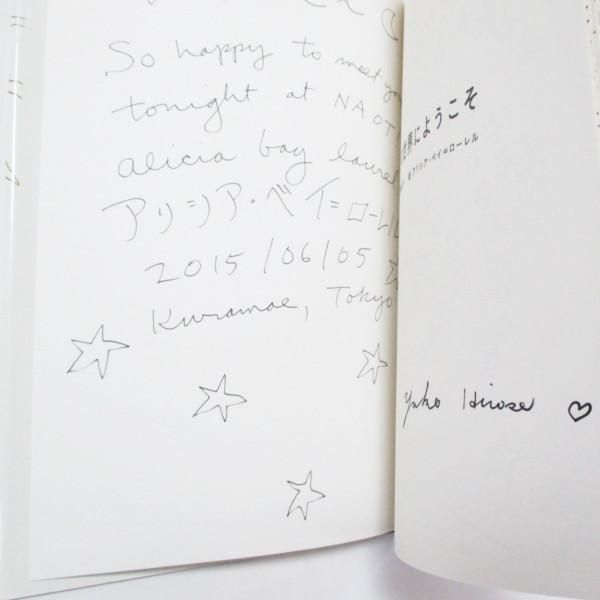 So happy to meet you
tonight at NAOT
alicia bay laurel
アリシア・ベイ=ローレル
2015/06/05
Kuramae, Tokyo
世界にようこそ
アリシア・ベイ=ローレル
Yuko Hirose